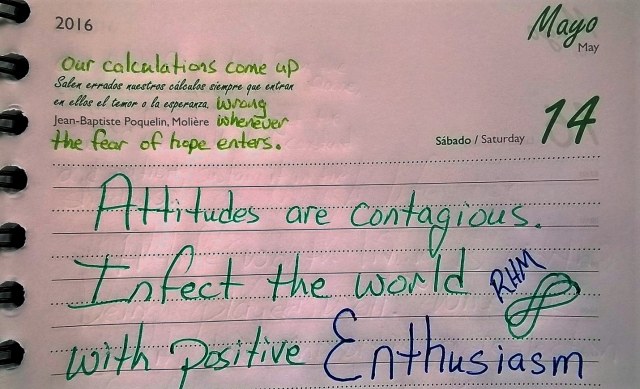 2016
Mayo
May
our calculations come up
Salen errados nuestros cálculos siempre que entran
en ellos el temor o la esperanza. wrong
Jean-Baptiste Poquelin, Molière whenever
the fear of hope enters.
Sábado / Saturday 14
Attitudes are contagious.
Infect the world RHM
with positive Enthusiasm